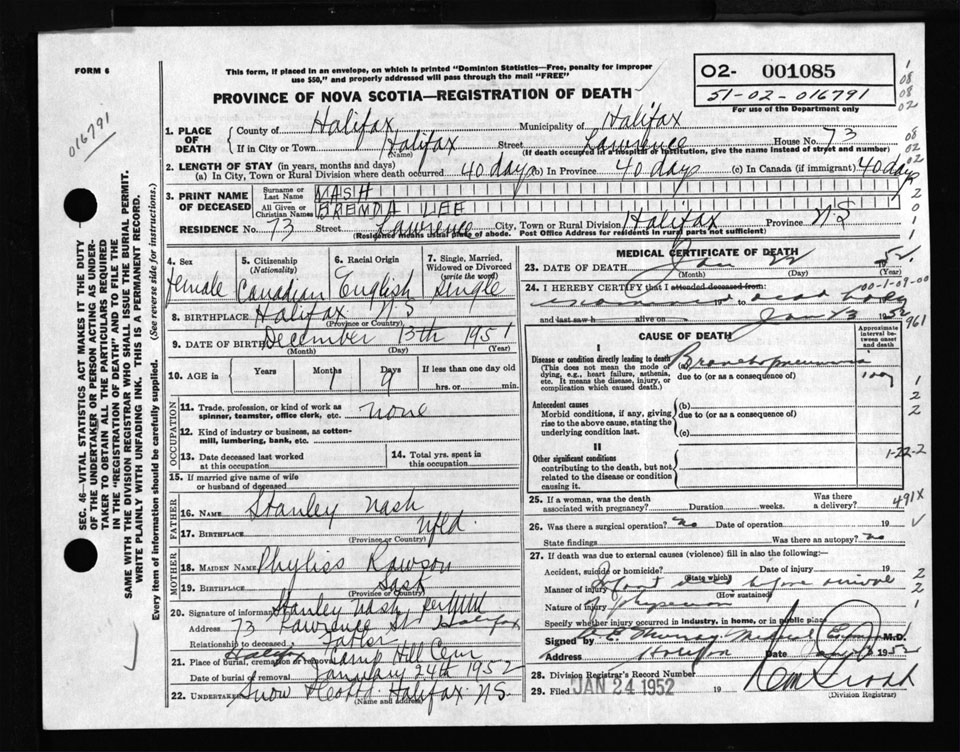 FORM 6
This form, if placed in an envelope, on which is printed "Dominion Statistics—Free, penalty for improper
use $50," and properly addressed will pass through the mail "FREE"
02- 001085
51-02-016791
For use of the Department only
PROVINCE OF NOVA SCOTIA—REGISTRATION OF DEATH
016791
1. PLACE OF DEATH
County of Halifax Municipality of Halifax
If in City or Town Halifax Street Lawrence House No. 73
(Name) (If death occurred in a hospital or institution, give the name instead of street and number)
2. LENGTH OF STAY (in years, months and days)
(a) In City, Town or Rural Division where death occurred 40 days (b) In Province 40 days (c) In Canada (if immigrant) 40 days
3. PRINT NAME OF DECEASED
Surname or Last Name NASH
All Given or Christian Names BRENDA LEE
RESIDENCE No. 73 Street Lawrence City, Town or Rural Division Halifax Province NS
(Residence means usual place of abode. Post Office Address for residents in rural parts not sufficient)
4. Sex Female
5. Citizenship (Nationality) Canadian
6. Racial Origin English
7. Single, Married, Widowed or Divorced (write the word) Single
8. BIRTHPLACE Halifax NS
(Province or Country)
9. DATE OF BIRTH December 13th 1951
(Month) (Day) (Year)
10. AGE in Years Months 1 Days 9 If less than one day old
hrs. or min.
OCCUPATION
11. Trade, profession, or kind of work as spinner, teamster, office clerk, etc. none
12. Kind of industry or business, as cotton-mill, lumbering, bank, etc.
13. Date deceased last worked at this occupation
14. Total yrs. spent in this occupation
15. If married give name of wife or husband of deceased
FATHER
16. NAME Stanley Nash
17. BIRTHPLACE Nfld
(Province or Country)
MOTHER
18. MAIDEN NAME Phyliss Rawson
19. BIRTHPLACE Sask
(Province or Country)
20. Signature of informant Stanley Nash, per
Address 73 Lawrence St Halifax
Relationship to deceased Father
21. Place of burial, cremation or removal Halifax Camp Hill Cem
Date of burial or removal January 24th 1952
22. UNDERTAKER Snow Halifax NS.
(Name and address)
MEDICAL CERTIFICATE OF DEATH
23. DATE OF DEATH Jan 22 52
(Month) (Day)
24. I HEREBY CERTIFY that I attended deceased from:
examined dead body
and last saw h alive on Jan 23 1952
CAUSE OF DEATH
Approximate interval between onset and death
I
Disease or condition directly leading to death
(This does not mean the mode of dying, e.g., heart failure, asthenia, etc. It means the disease, injury, or complication which caused death.)
(a) Bronchopneumonia
due to (or as a consequence of) 1 day
Antecedent causes
Morbid conditions, if any, giving rise to the above cause, stating the underlying condition last.
(b)
due to (or as a consequence of)
(c)
II
Other significant conditions
contributing to the death, but not related to the disease or condition causing it.
1-22-2
25. If a woman, was the death associated with pregnancy? Duration weeks. Was there a delivery?
491X
26. Was there a surgical operation? no Date of operation 19
State findings Was there an autopsy? no
27. If death was due to external causes (violence) fill in also the following:—
Accident, suicide or homicide? Date of injury 19
(State which)
Manner of injury Infant died before arrival
(How sustained)
Nature of injury of physician
Specify whether injury occurred in industry, in home, or in public place
Signed by Murray Medical M.D.
Address Halifax Date 1952
28. Division Registrar's Record Number
29. Filed JAN 24 1952 19
(Division Registrar)
SEC. 46—VITAL STATISTICS ACT MAKES IT THE DUTY
OF THE UNDERTAKER OR PERSON ACTING AS UNDER-
TAKER TO OBTAIN ALL THE PARTICULARS REQUIRED
IN THE "REGISTRATION OF DEATH" AND TO FILE THE
SAME WITH THE DIVISION REGISTRAR WHO SHALL ISSUE THE BURIAL PERMIT.
WRITE PLAINLY WITH UNFADING INK. THIS IS A PERMANENT RECORD.
Every item of information should be carefully supplied. (See reverse side for instructions.)